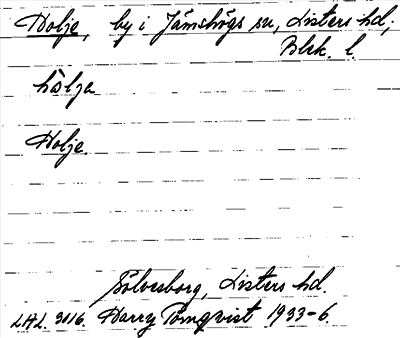 Holje, by i Jämshögs sn, Listers hd,
Blek. l.
hòlja
Holje.
Sölvesborg, Listers hd.
LHL. 3016. Harry Törnqvist 1933-6.